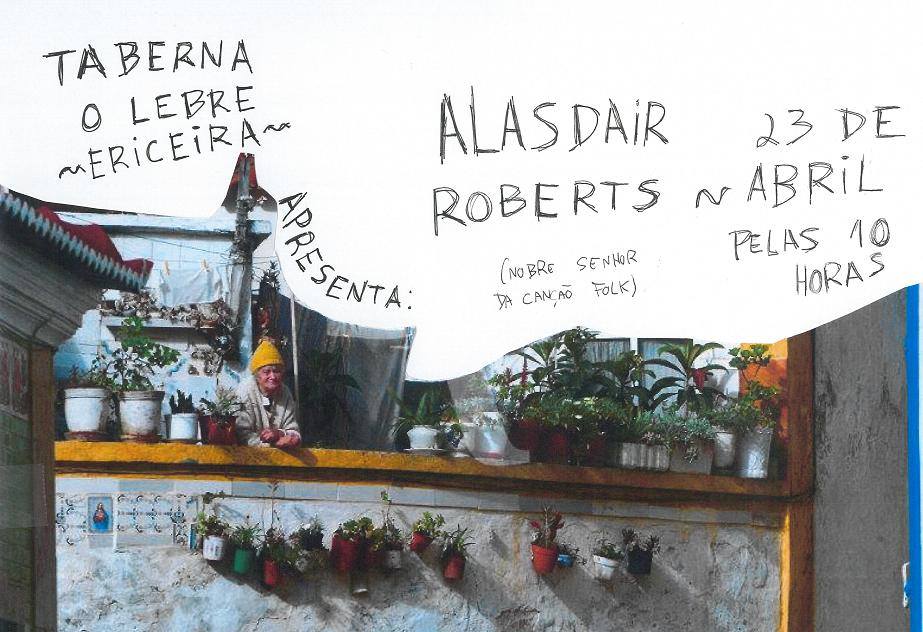 TABERNA
O LEBRE
~ERICEIRA~
APRESENTA:
ALASDAIR
ROBERTS ~
(NOBRE SENHOR
DA CANÇÃO FOLK)
23 DE
ABRIL
PELAS 10
HORAS